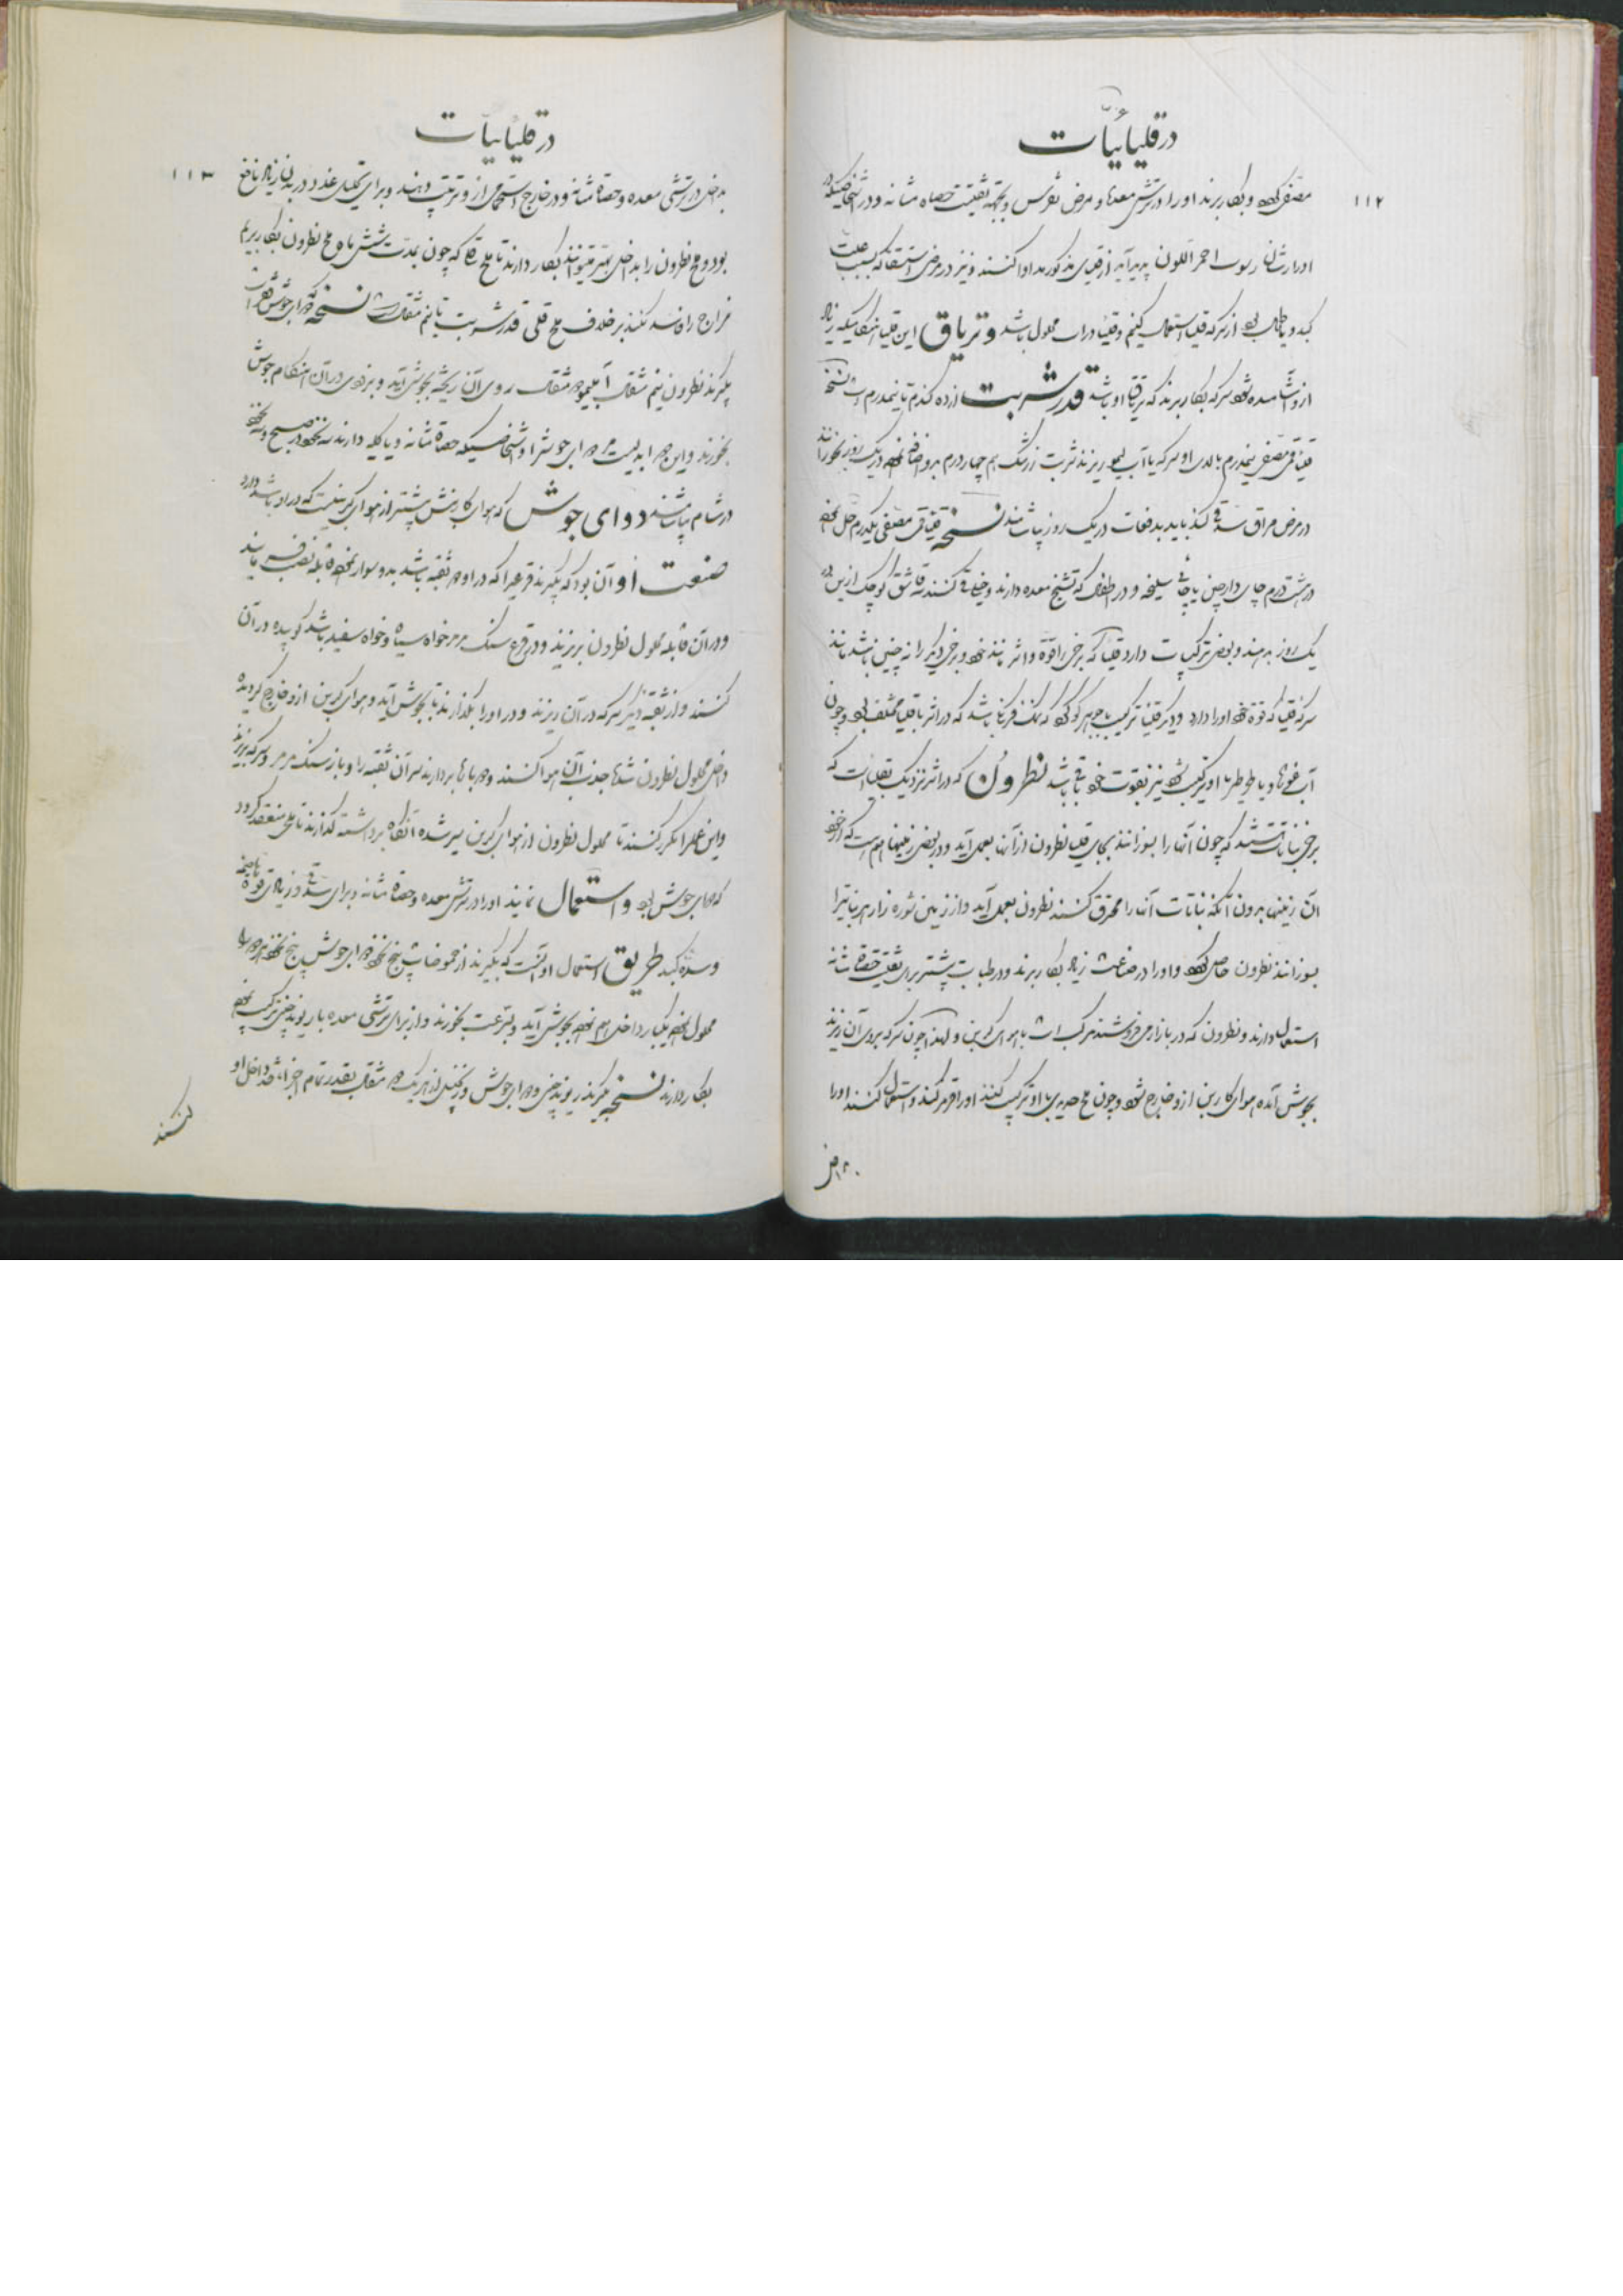 در قلیائیّات
۱۱۲
مصفّی کرده و بکار برند او را در ترشی معده و مرض نقرس و بجهة تفتیت حصاه مثانه و در اشخاصیکه در
ادرارشان رسوب احمر اللون پدید آید از قلیای مذکور مداوا کنند و نیز در مرض استسقا که بسبب علت
کبد و یا طحال بود از سرکه قلیا استعمال کنیم و قلیا در آب محلول باشد و تریاق این قلیا هنگامیکه زیاد
ازو آشامیده شود سرکه بکار برند که تریاق او باشد قدر شربت از ده گندم تا نیمدرم است نسخه
قلیا قمی مصفی نیمدرم بالای او سرکه یا آب لیمو ریزند شربت زرشک هم چهار درم برو اضافه نموده در یک روز بخورانند
در مرض مراق سده کند باید بدفعات در یک روز بیاشامند نسخه قلیا قمی مصفی یکدرم حل نموده
در هشت درم چای دارچین یا چای سلیخه و در اطفال که تشنج معده دارند و خیلی قی کنند قاشق کوچک ازین در
یک روز بدهند و بعضی ترکیبات دارد قلیا که برخی را قوّة و اثر مانند خود و برخی دیگر را نه چنین باشد مانند
سرکه قلیا که قوة خود او را دارد و دیگر قلیا ترکیب با جوهر گوگرد که نمک فرنگی باشد که در اثر با قلیا مختلف بود و چون
آب فوها و یا طرطر با او ترکیب شود نیز بقوت خود باقی باشد نطرون که در اثر نزدیک بقلیا است که
برخی نباتات هستند که چون آنها را بسوزانند بجای قلیا نطرون از آنها بعمل آید و در بعضی زمینها هم هست که از خود
آن زمینها بدون آنکه نباتات آنها را محرق کنند نطرون بعمل آید و از زمین شوره زار هر نباتیرا
بسوزانند نطرون حاصل شود و او را در صناعت زیاد بکار برند و در طبابت بیشتر برای تفتیت حصاه مثانه
استعمال دارند و نطرون که در بازار می فروشند مرکب است با هوای کربن و لهذا چون سرکه بروی آن ریزند
بجوش آمده هوای کاربن ازو خارج شود و چون ملح حدیدی با او ترکیب کنند او را قرمز کند و استعمال کنند او را
در قلیاییّات
۱۱۳
بداخل در ترشی معده و حصاة مثانه و در خارج استحمامی از و ترتیب دهند و برای تحلیل غدد در بدن زیاد نافع
بود و ملح نطرون را بداخل بهتر میتوانند بکار دارند تا ملح قلیا که چون بمدت شش ماه ملح نطرون بکار بریم
مزاج را فاسد نکند بر خلاف ملح قلی قدر شربت تا نیم مثقال است نسخه که دوای جوش فقرات
بگیرند نطرون نیم مثقال آبلیمو مثقال روی آن ریخته بجوش آید و بزودی در آن هنگام جوش
بخورند و این دوا بدلیست دوای جوش را و اشخاصیکه حصاة مثانه و یا کلیه دارند نه نخود در صبح و نه نخود
در شام بیاشامند دوای جوش که هوای کاربنش بیشتر از هوای کربنیست که در او باشد دارد
صنعت او آن بود که بگیرند قرعیرا که در او دو ثقبه باشد بدو سوار نموده قابله نصب فرمایند
و در آن قابله محلول نطرون بریزند و در قرع سنک مرمر خواه سیاه و خواه سفید باشد کوبیده در آن
کنند و از ثقبه دیگر سرکه در آن ریزند و در او را بگذارند تا بجوش آید و هوای کربن ازو خارج گردیده
داخل محلول نطرون شدها جذب آن هوا کنند و دو بارها بردارند سر آن ثقبه را و باز سنک مرمر و سرکه بریزند
و این عمل را مکرر کنند تا محلول نطرون از هوای کربن سیر شده آنگاه برداشته گذارند تا ملحی منعقد گردد
که دوای جوش بود و استعمال نمایند او را در ترشی معده و حصاة مثانه و برای سده و زیادتی قوة هاضمه
و سده کبد طریق استعمال او آنست که بگیرند از حموضات پنج نخود و دوای جوش پنج نخود هر دو را
محلول نموده بیکبار داخل هم نموده بجوش آید و بسرعت بخورند و از برای ترشی معده با ریوند چینی ترکیب نموده
بکار دارند نسخه بگیرند ریوند چینی و دوای جوش و زنجبیل از هر یک دو مثقال بقدر تمام اجزاء قند داخل او
کنند